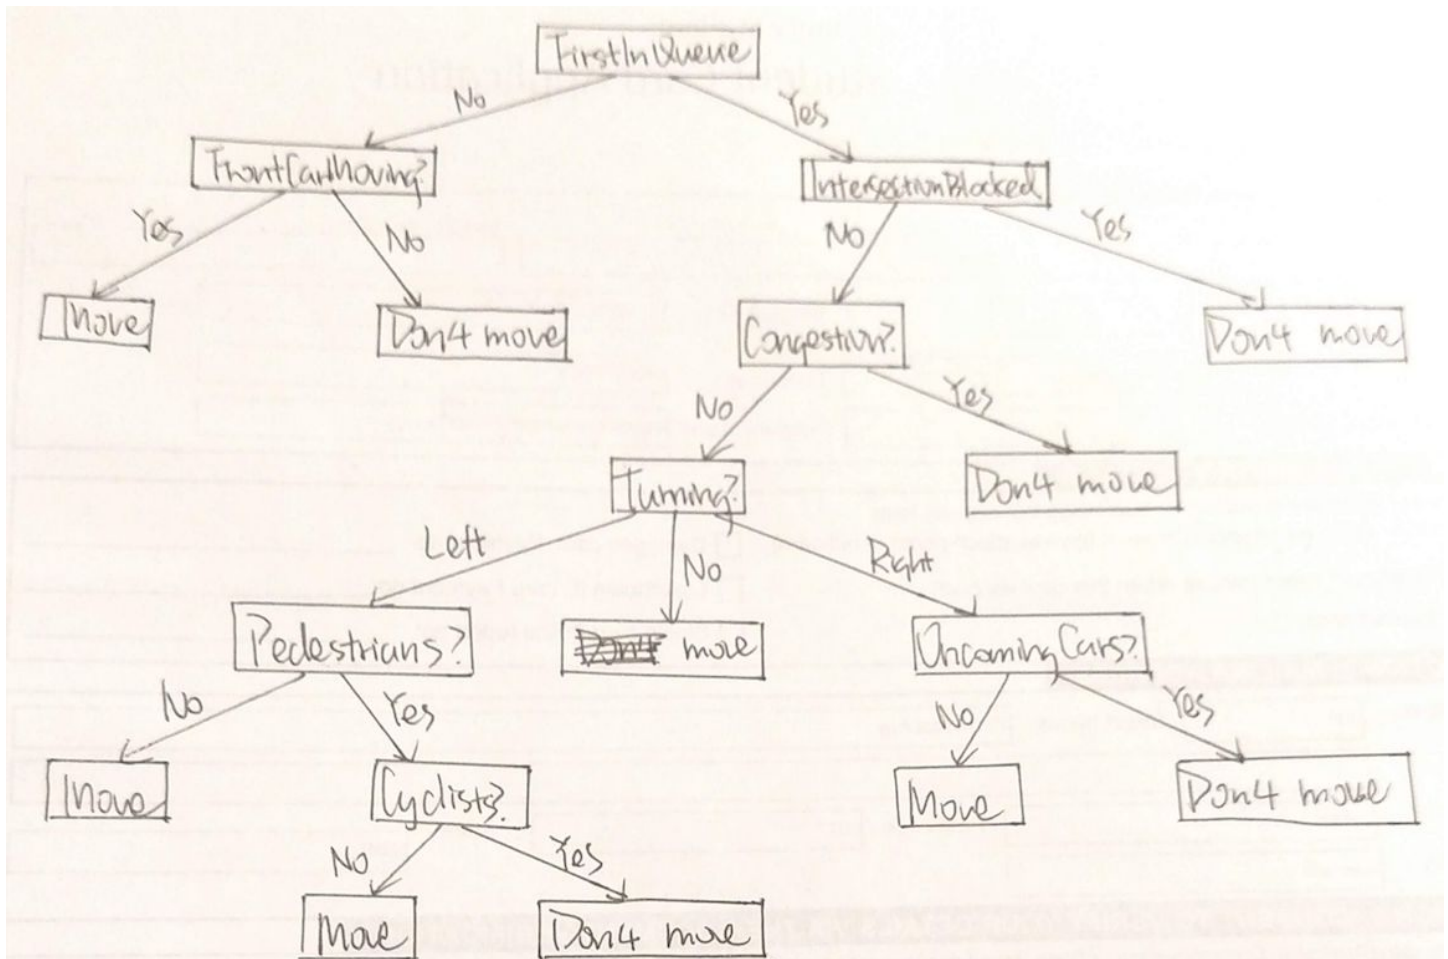 FirstInQueue
No
Yes
FrontCarMoving?
IntersectionBlocked
Yes
No
No
Yes
Move
Don't move
Congestion?
Don't move
No
Yes
Turning?
Don't move
Left
No
Right
Pedestrians?
move
OncomingCars?
No
Yes
No
Yes
Move
Cyclists?
Move
Don't move
No
Yes
Move
Don't move